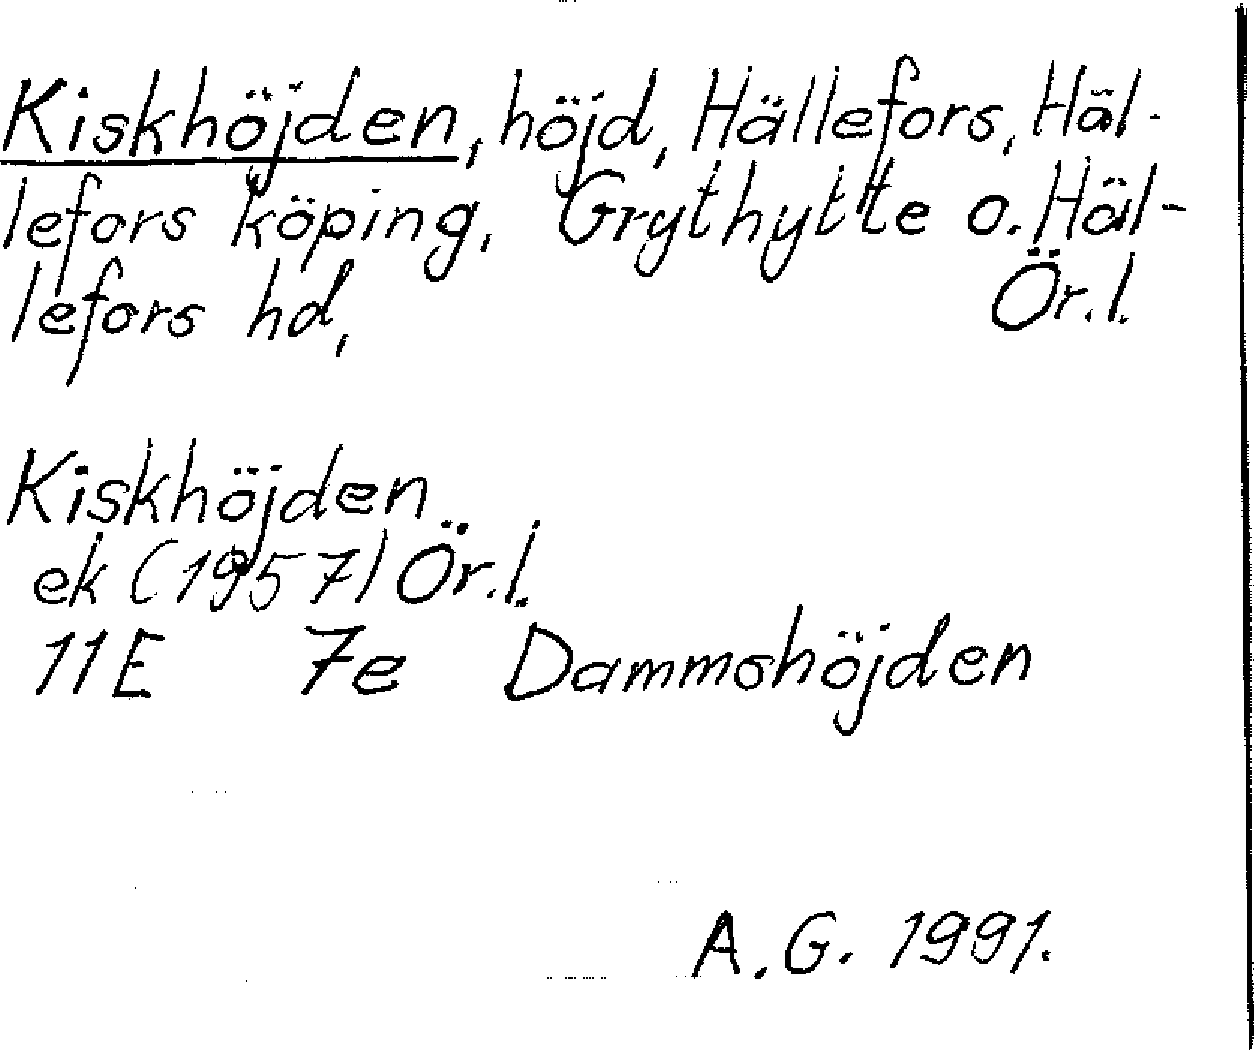 Kiskhöjden, höjd, Hällefors, Häl-
lefors köping, Grythytte o. Häl-
lefors hd, Ör.l.
Kiskhöjden
ek (1957) Ör.l.
11E 7e Dammshöjden
A.G. 1991.